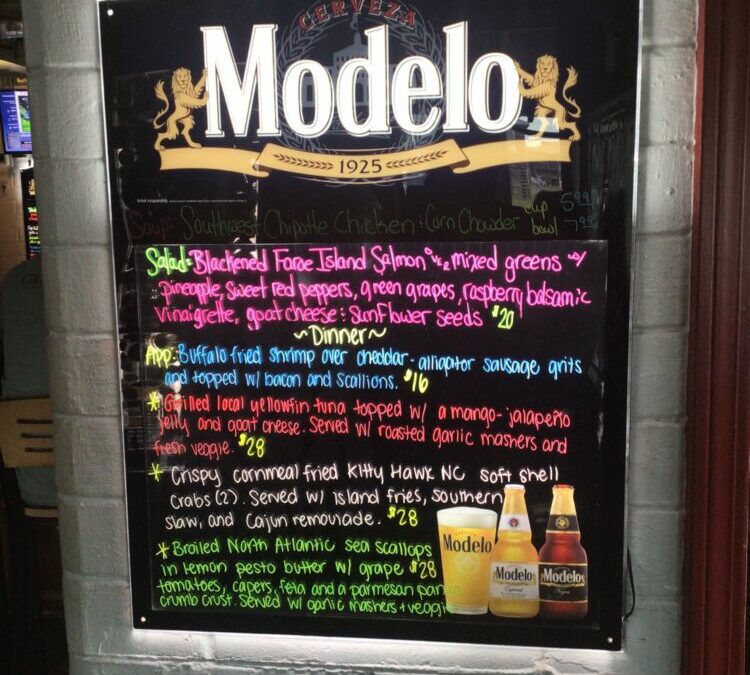 CERVEZA
Modelo
1925
Drink responsibly.
Soup: Southwest Chipotle Chicken & Corn Chowder cup 5.99
bowl 7.99
Salad: Blackened Faroe Island Salmon over mixed greens w/
pineapple, sweet red peppers, green grapes, raspberry balsamic
vinaigrette, goat cheese & sunflower seeds $20
~Dinner~
App: Buffalo fried shrimp over cheddar-alligator sausage grits
and topped w/ bacon and scallions. $16
* Grilled local yellowfin tuna topped w/ a mango-jalapeño
jelly and goat cheese. Served w/ roasted garlic mashers and
fresh veggie. $28
* Crispy cornmeal fried Kitty Hawk NC soft shell
crabs (2). Served w/ island fries, southern
slaw, and Cajun remoulade. $28
* Broiled North Atlantic sea scallops
in lemon pesto butter w/ grape $28
tomatoes, capers, feta and a parmesan panko
crumb crust. Served w/ garlic mashers + veggie
Modelo
Modelo
Especial
Modelo
Negra